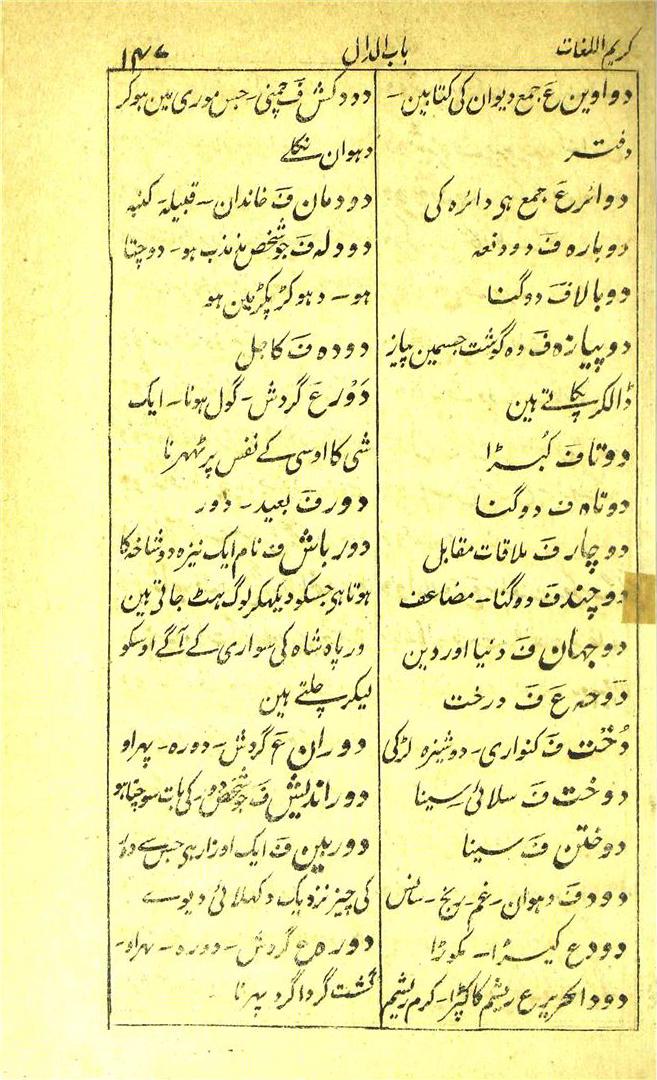 کریم اللغات
باب الدال
۱۴۷
دواوین عَ جمع دیوان کی کتابین۔
دفتر
دوائر عَ جمع ہی دائرہ کی
دوبارہ فَ دو دفعہ
دوبالا فَ دوگنا
دوپیازہ فَ وہ گوشت جسمین پیاز
ڈالکر پکاتے ہین
دوتا فَ کُبڑا
دوتاہ ف دوگنا
دوچار فَ ملاقات مقابل
دوچند فَ دوگنا۔ مضاعف
دوجہان فَ دنیا اور دین
دَوحہ عَ فَ درخت
دُخت فَ کنواری۔ دوشیزہ لڑکی
دوخت فَ سلائی سینا
دوختن فَ سینا
دود فَ دہوان۔ غم۔ رنج۔ سانس
دود ع کیڑا۔ مکوڑا
دود الحریر ع ریشم کا کپڑا۔ کرم ریشم
دودکش فَ چمنی۔ جس موری مین ہوکر
دہوان نکلے
دودمان فَ خاندان۔ قبیلہ۔ کنبہ
دودلہ فَ جو شخص مذبذب ہو۔ دوچتا
ہو۔ دہوکڑ پکڑ مین ہو
دودہ فَ کاجل
دَوْر عَ گردش۔ گول ہونا۔ ایک
شی کا اوسی کے نفس پر ٹھہرنا
دور فَ بعید۔ دور
دورباش ف نام ایک نیزہ دوشاخہ کا
ہوتا ہی جسکو دیکھکر لوگ ہٹ جاتی ہین
ور پاہ شاہ کی سواری کے آگے اوسکو
لیکر چلتے ہین
دوران عَ گردش۔ دورہ۔ پہراو
دوراندیش فَ جو شخص دور کی بات سوچتا ہو
دوربین فَ ایک اوزار ہی جس سے دور
کی چیز نزدیک دکھلائی دیوے
دورہ ع گردش۔ دورہ۔ پہراو۔
گشت گرداگرد پہرنا